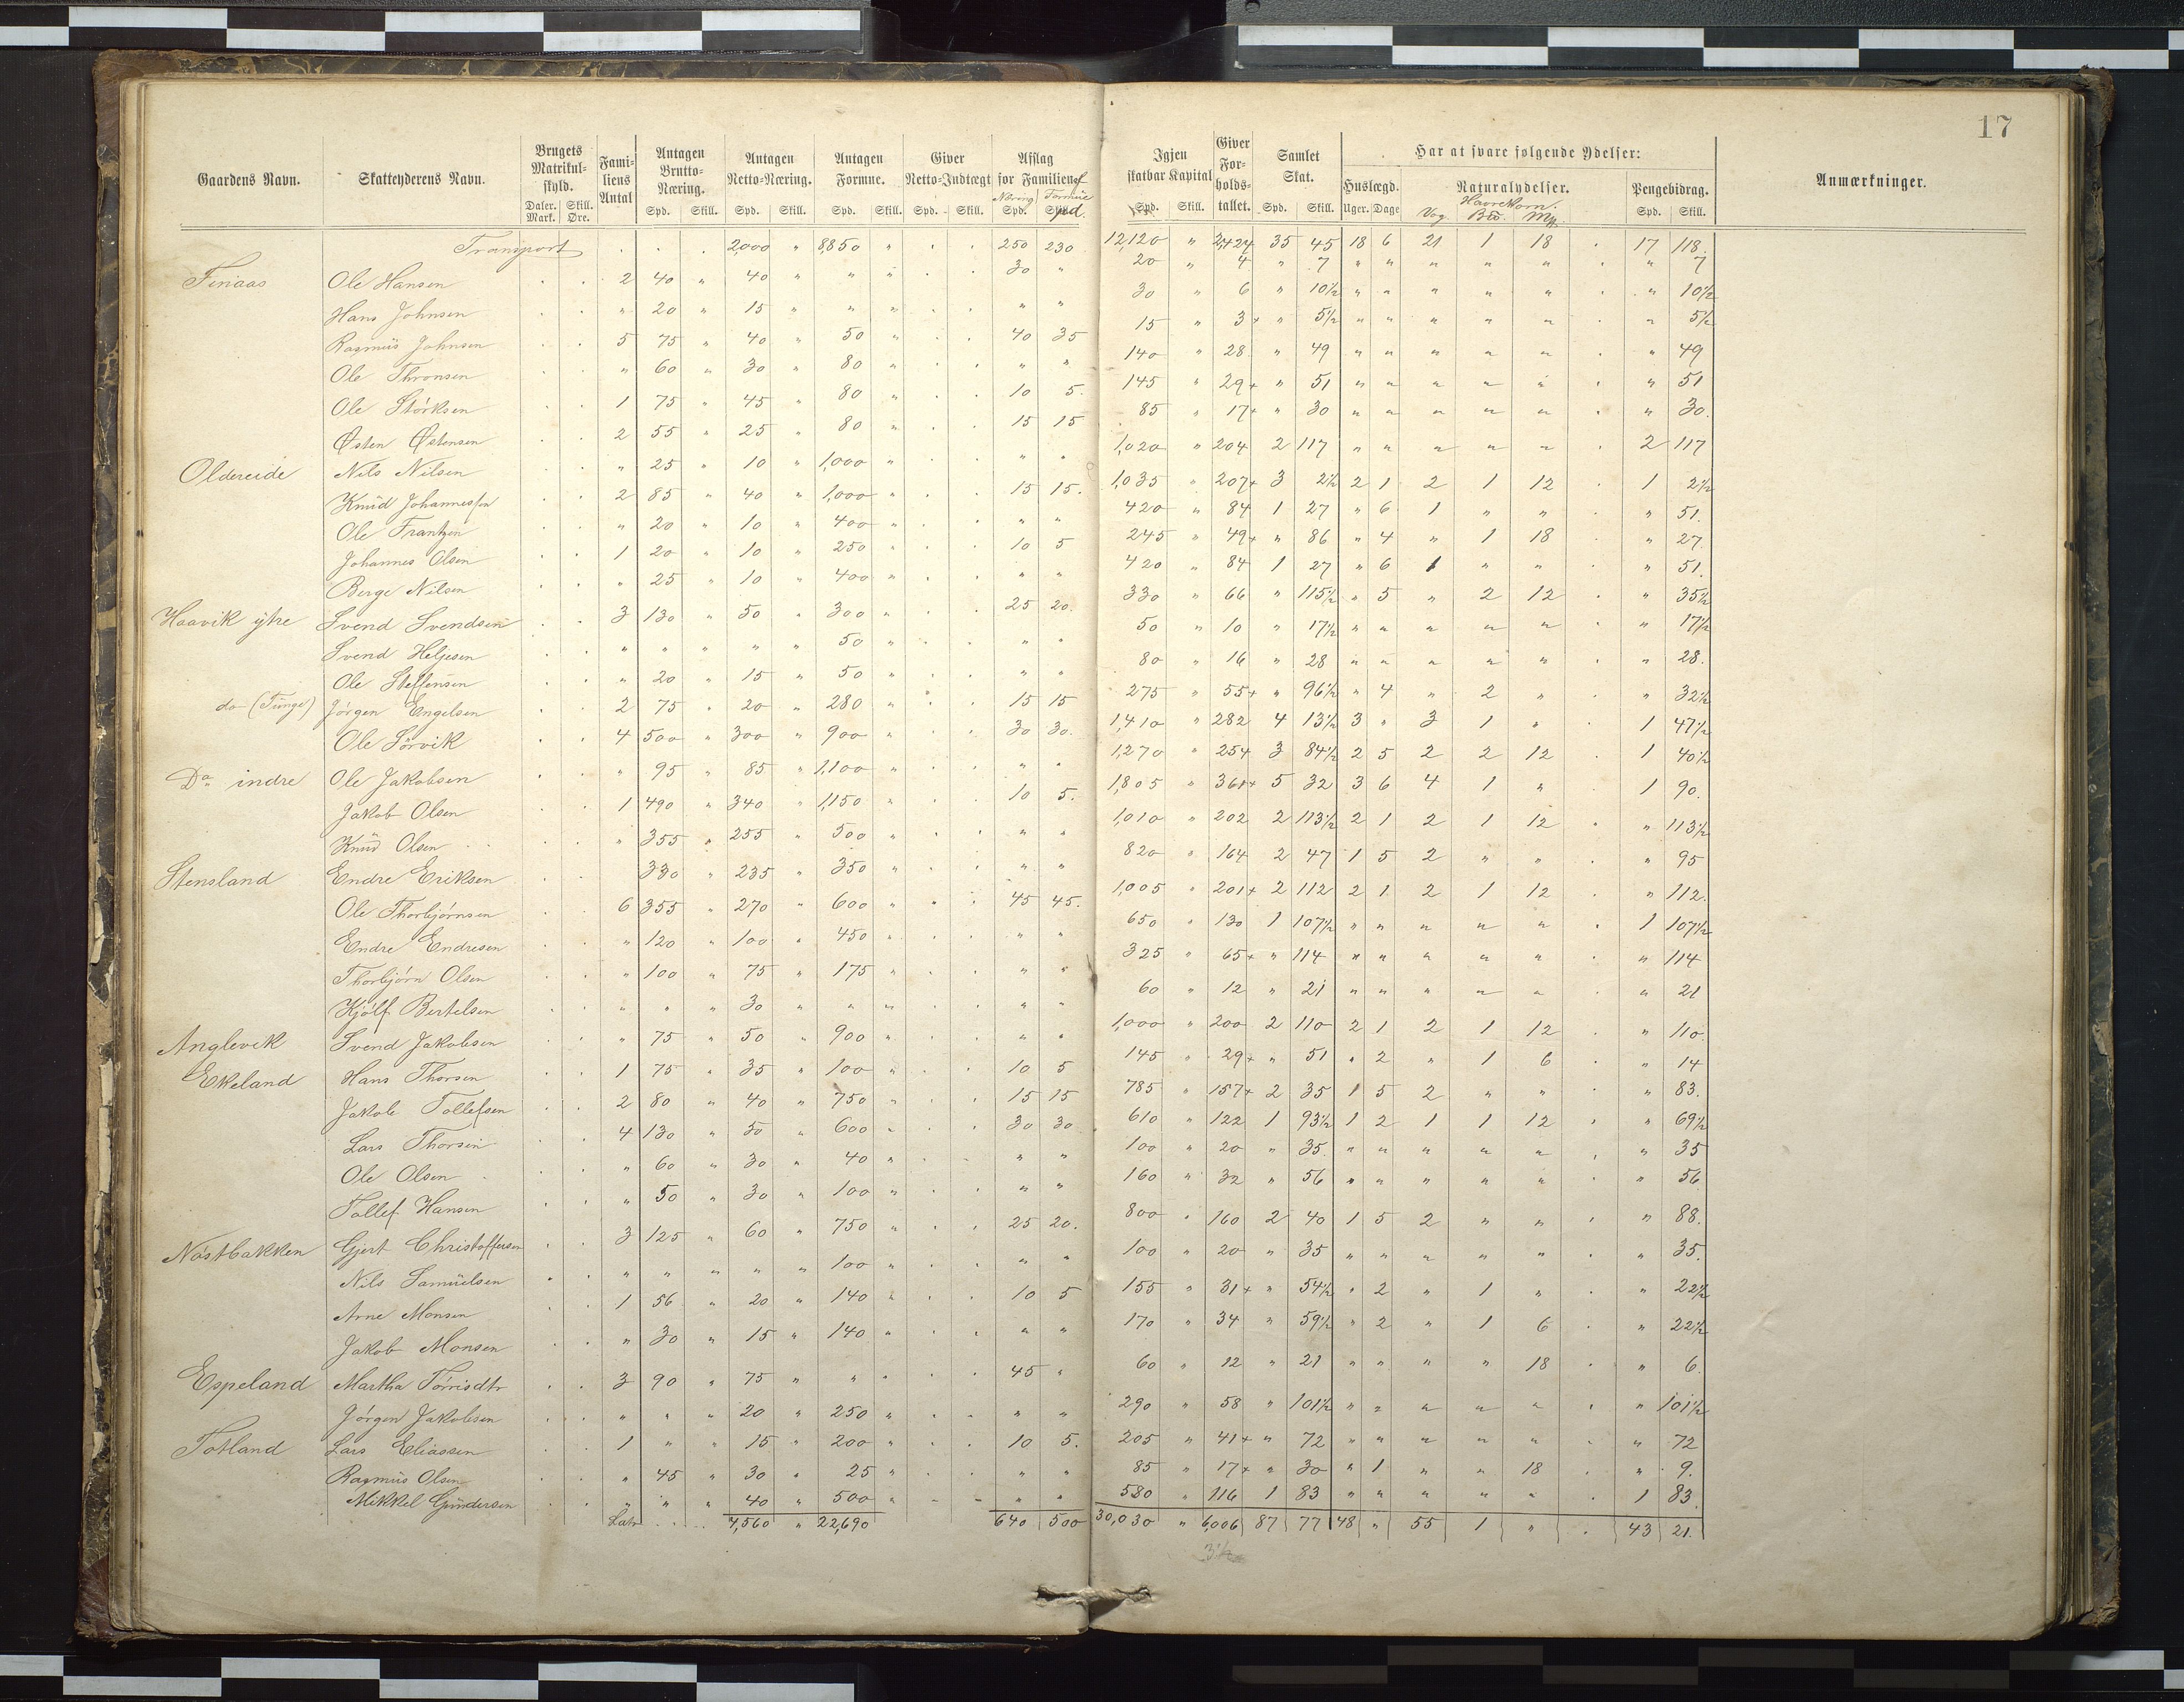 17
Gaardens Navn. Skatteyderens Navn. Brugets Matrikulskyld. Daler. Mark. Skill. Øre. Familiens Antal Antagen Brutto-Næring. Spd. Skill. Antagen Netto-Næring. Spd. Skill. Antagen Formue. Spd. Skill. Giver Netto-Indtægt Spd. Skill. Afslag for Familien af Næring Spd. Formue Spd. Igjen skatbar Kapital Spd. Skill. Giver Forholdstallet. Samlet Skat. Spd. Skill. Har at svare følgende Ydelser: Huslægd. Uger. Dage Naturalydelser. Havrekorn. Vog Mk. Pengebidrag. Spd. Skill. Anmærkninger.
Transport . . . 2,000 " 8,850 " . . 250 230 12,120 " 2,424 35 45 18 6 21 1 18 . 17 118.
Finaas Ole Hansen . . 2 40 " 40 " " . . 30 " 20 " 4 " 7 " " " " " . " 7
Hans Johnsen . . " 20 " 15 " " " . . " " 30 " 6 " 10½ " " " " " . " 10½
Rasmus Johnsen . . 5 75 " 40 " 50 " . . 40 35 15 " 3+ " 5½ " " " " " . " 5½
Ole Thronsen . . " 60 " 30 " 80 " . . " " 140 " 28 " 49 " " " " " . " 49
Ole Störksen . . 1 75 " 45 " 80 " . . 10 5. 145 " 29+ " 51 " " " " " . " 51
Østen Østensen . . 2 55 " 25 " 80 " . . 15 15 85 " 17+ " 30 " " " " " . " 30.
Oldereide Nils Nilsen . . " 25 " 10 " 1,000 " . . " " 1,020 " 204 2 117 " " " " " . 2 117
Knud Johannessen . . 2 85 " 40 " 1,000 " . . 15 15. 1,035 " 207+ 3 2½ 2 1 2 1 12 . 1 2½
Ole Frantzen . . " 20 " 10 " 400 " . . " " 420 " 84 1 27 " 6 1 " " . " 51.
Johannes Olsen . . 1 20 " 10 " 250 " . . 10 5 245 " 49+ " 86 " 4 " 1 18 . " 27.
Berge Nilsen . . " 25 " 10 " 400 " . . " " 420 " 84 1 27 " 6 1 " " . " 51.
Haavik ytre Svend Svendsen . . 3 130 " 50 " 300 " . . 25 20. 330 " 66 " 115½ " 5 " 2 12 . " 35½
Svend Heljesen . . " " " " " 50 " . . " " 50 " 10 " 17½ " " " " " . " 17½
Ole Steffensen . . " 20 " 15 " 50 " . . " " 80 " 16 " 28 " " " " " . " 28.
do (Tunge) Jörgen Engelsen . . 2 75 " 20 " 280 " . . 15 15 275 " 55+ " 96½ " 4 " 2 " . " 32½
Ole Sörvik . . 4 500 " 300 " 900 " . . 30 30. 1,410 " 282 4 13½ 3 " 3 1 " . 1 47½
Do indre Ole Jakobsen . . " 95 " 85 " 1,100 " . . " " 1,270 " 254 3 84½ 2 5 2 2 12 . 1 40½
Jakob Olsen . . 1 490 " 340 " 1,150 " . . 10 5. 1,805 " 361+ 5 32 3 6 4 1 " . 1 90.
Knud Olsen . . " 355 " 255 " 500 " . . " " 1,010 " 202 2 113½ 2 1 2 1 12 . " 113½
Stensland Endre Eriksen . . 330 " 235 " 350 " . . " " 820 " 164 2 47 1 5 2 " " . " 95
Ole Thorbjörnsen . . 6 355 " 270 " 600 " . . 45 45. 1,005 " 201+ 2 112 2 1 2 1 12 . " 112.
Endre Endresen . . " 120 " 100 " 450 " . . " " 650 " 130 1 107½ " " " " " . 1 107½
Thorbjörn Olsen . . " 100 " 75 " 175 " . . " " 325 " 65+ " 114 " " " " " . " 114
Kjölf Bertelsen . . " " " 30 " " " . . " " 60 " 12 " 21 " " " " " . " 21
Anglevik Svend Jakobsen . . " 75 " 50 " 900 " . . " " 1,000 " 200 2 110 2 1 2 1 12 . " 110.
Ekeland Hans Thorsen . . 1 75 " 35 " 100 " . . 10 5 145 " 29+ " 51 " 2 " 1 6 . " 14
Jakob Tollefsen . . 2 80 " 40 " 750 " . . 15 15 785 " 157+ 2 35 1 5 2 " " . " 83.
Lars Thorsen . . 4 130 " 50 " 600 " . . 30 30 610 " 122 1 93½ 1 2 1 1 12 . " 69½
Ole Olsen . . " 60 " 30 " 40 " . . " " 100 " 20 " 35. " " " " " . " 35
Tollef Hansen . . " 50 " 30 " 100 " . . " " 160 " 32 " 56 " " " " " . " 56
Nöstbakken Gjert Christoffersen . . 3 125 " 60 " 750 " . . 25 20. 800 " 160 2 40 1 5 2 " " . " 88.
Nils Samuelsen . . " " " " " 100 " . . " " 100 " 20 " 35 " " " " " . " 35.
Arne Monsen . . 1 56 " 20 " 140 " . . 10 5 155 " 31+ " 54½ " 2 " 1 " . " 22½
Jakob Monsen . . " 30 " 15 " 140 " . . " " 170 " 34 " 59½ " 2 " 1 6 . " 22½
Espeland Martha Törrisdtr . . 3 90 " 75 " " " . . 45 " 60 " 12 " 21 " " " " 18 . " 6.
Jörgen Jakobsen . . " " " 20 " 250 " . . " " 290 " 58 " 101½ " " " " " . " 101½
Totland Lars Eliassen . . 1 " " 15 " 200 " . . 10 5. 205 " 41+ " 72 " " " " " . " 72
Rasmus Olsen . . " 45 " 30 " 25 " . . " " 85 " 17+ " 30 " 1 " " 18 . " 9.
Mikkel Gundersen . . " " " 40 " 500 " . . " " 580 " 116 1 83 " " " " " . 1 83.
Lats . . . 4,560 " 22,690 640 500 30,030 " 6,006 87 77 48 " 55 1 " . 43 21.
3½